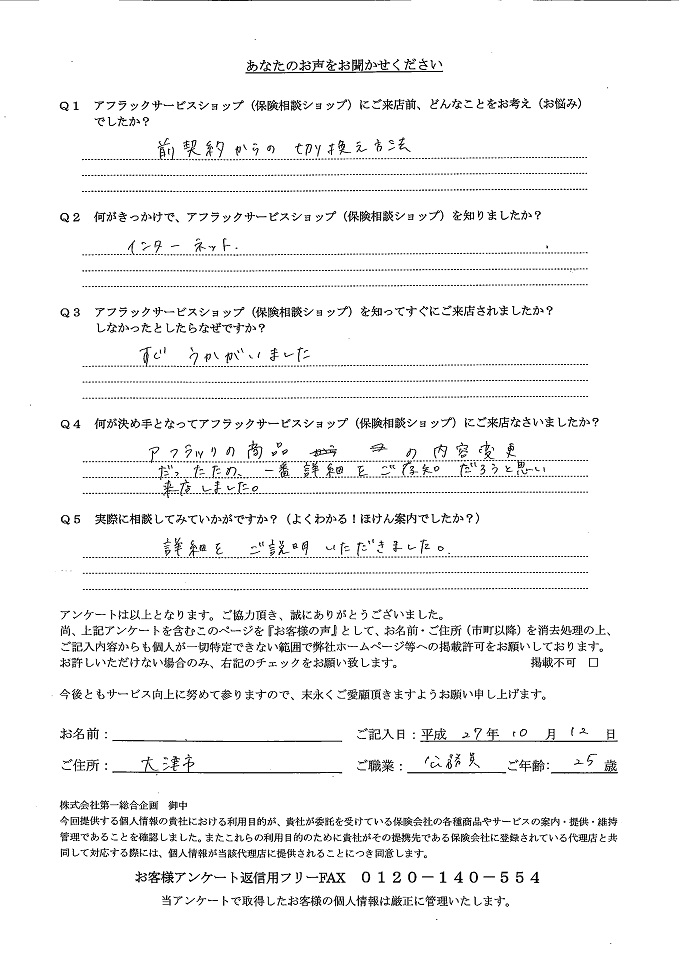 あなたのお声をお聞かせください
Q1 アフラックサービスショップ（保険相談ショップ）にご来店前、どんなことをお考え（お悩み）
でしたか？
前契約からの 切り換え方法
Q2 何がきっかけで、アフラックサービスショップ（保険相談ショップ）を知りましたか？
インターネット.
Q3 アフラックサービスショップ（保険相談ショップ）を知ってすぐにご来店されましたか？
しなかったとしたらなぜですか？
すぐ うかがいました
Q4 何が決め手となってアフラックサービスショップ（保険相談ショップ）にご来店なさいましたか？
アフラックの商品 の内容変更
だったため、一番詳細をご存知だろうと思い
来店しました。
Q5 実際に相談してみていかがですか？（よくわかる！ほけん案内でしたか？）
詳細を ご説明いただきました。
アンケートは以上となります。ご協力頂き、誠にありがとうございました。
尚、上記アンケートを含むこのページを『お客様の声』として、お名前・ご住所（市町以降）を消去処理の上、
ご記入内容からも個人が一切特定できない範囲で弊社ホームページ等への掲載許可をお願いしております。
お許しいただけない場合のみ、右記のチェックをお願い致します。 掲載不可 □
今後ともサービス向上に努めて参りますので、末永くご愛顧頂きますようお願い申し上げます。
お名前： ご記入日：平成 27年 10 月 12 日
ご住所： 大津市 ご職業： 公務員 ご年齢： 25 歳
株式会社第一総合企画 御中
今回提供する個人情報の貴社における利用目的が、貴社が委託を受けている保険会社の各種商品やサービスの案内・提供・維持
管理であることを確認しました。またこれらの利用目的のために貴社がその提携先である保険会社に登録されている代理店と共
同して対応する際には、個人情報が当該代理店に提供されることにつき同意します。
お客様アンケート返信用フリーFAX 0120－140－554
当アンケートで取得したお客様の個人情報は厳正に管理いたします。